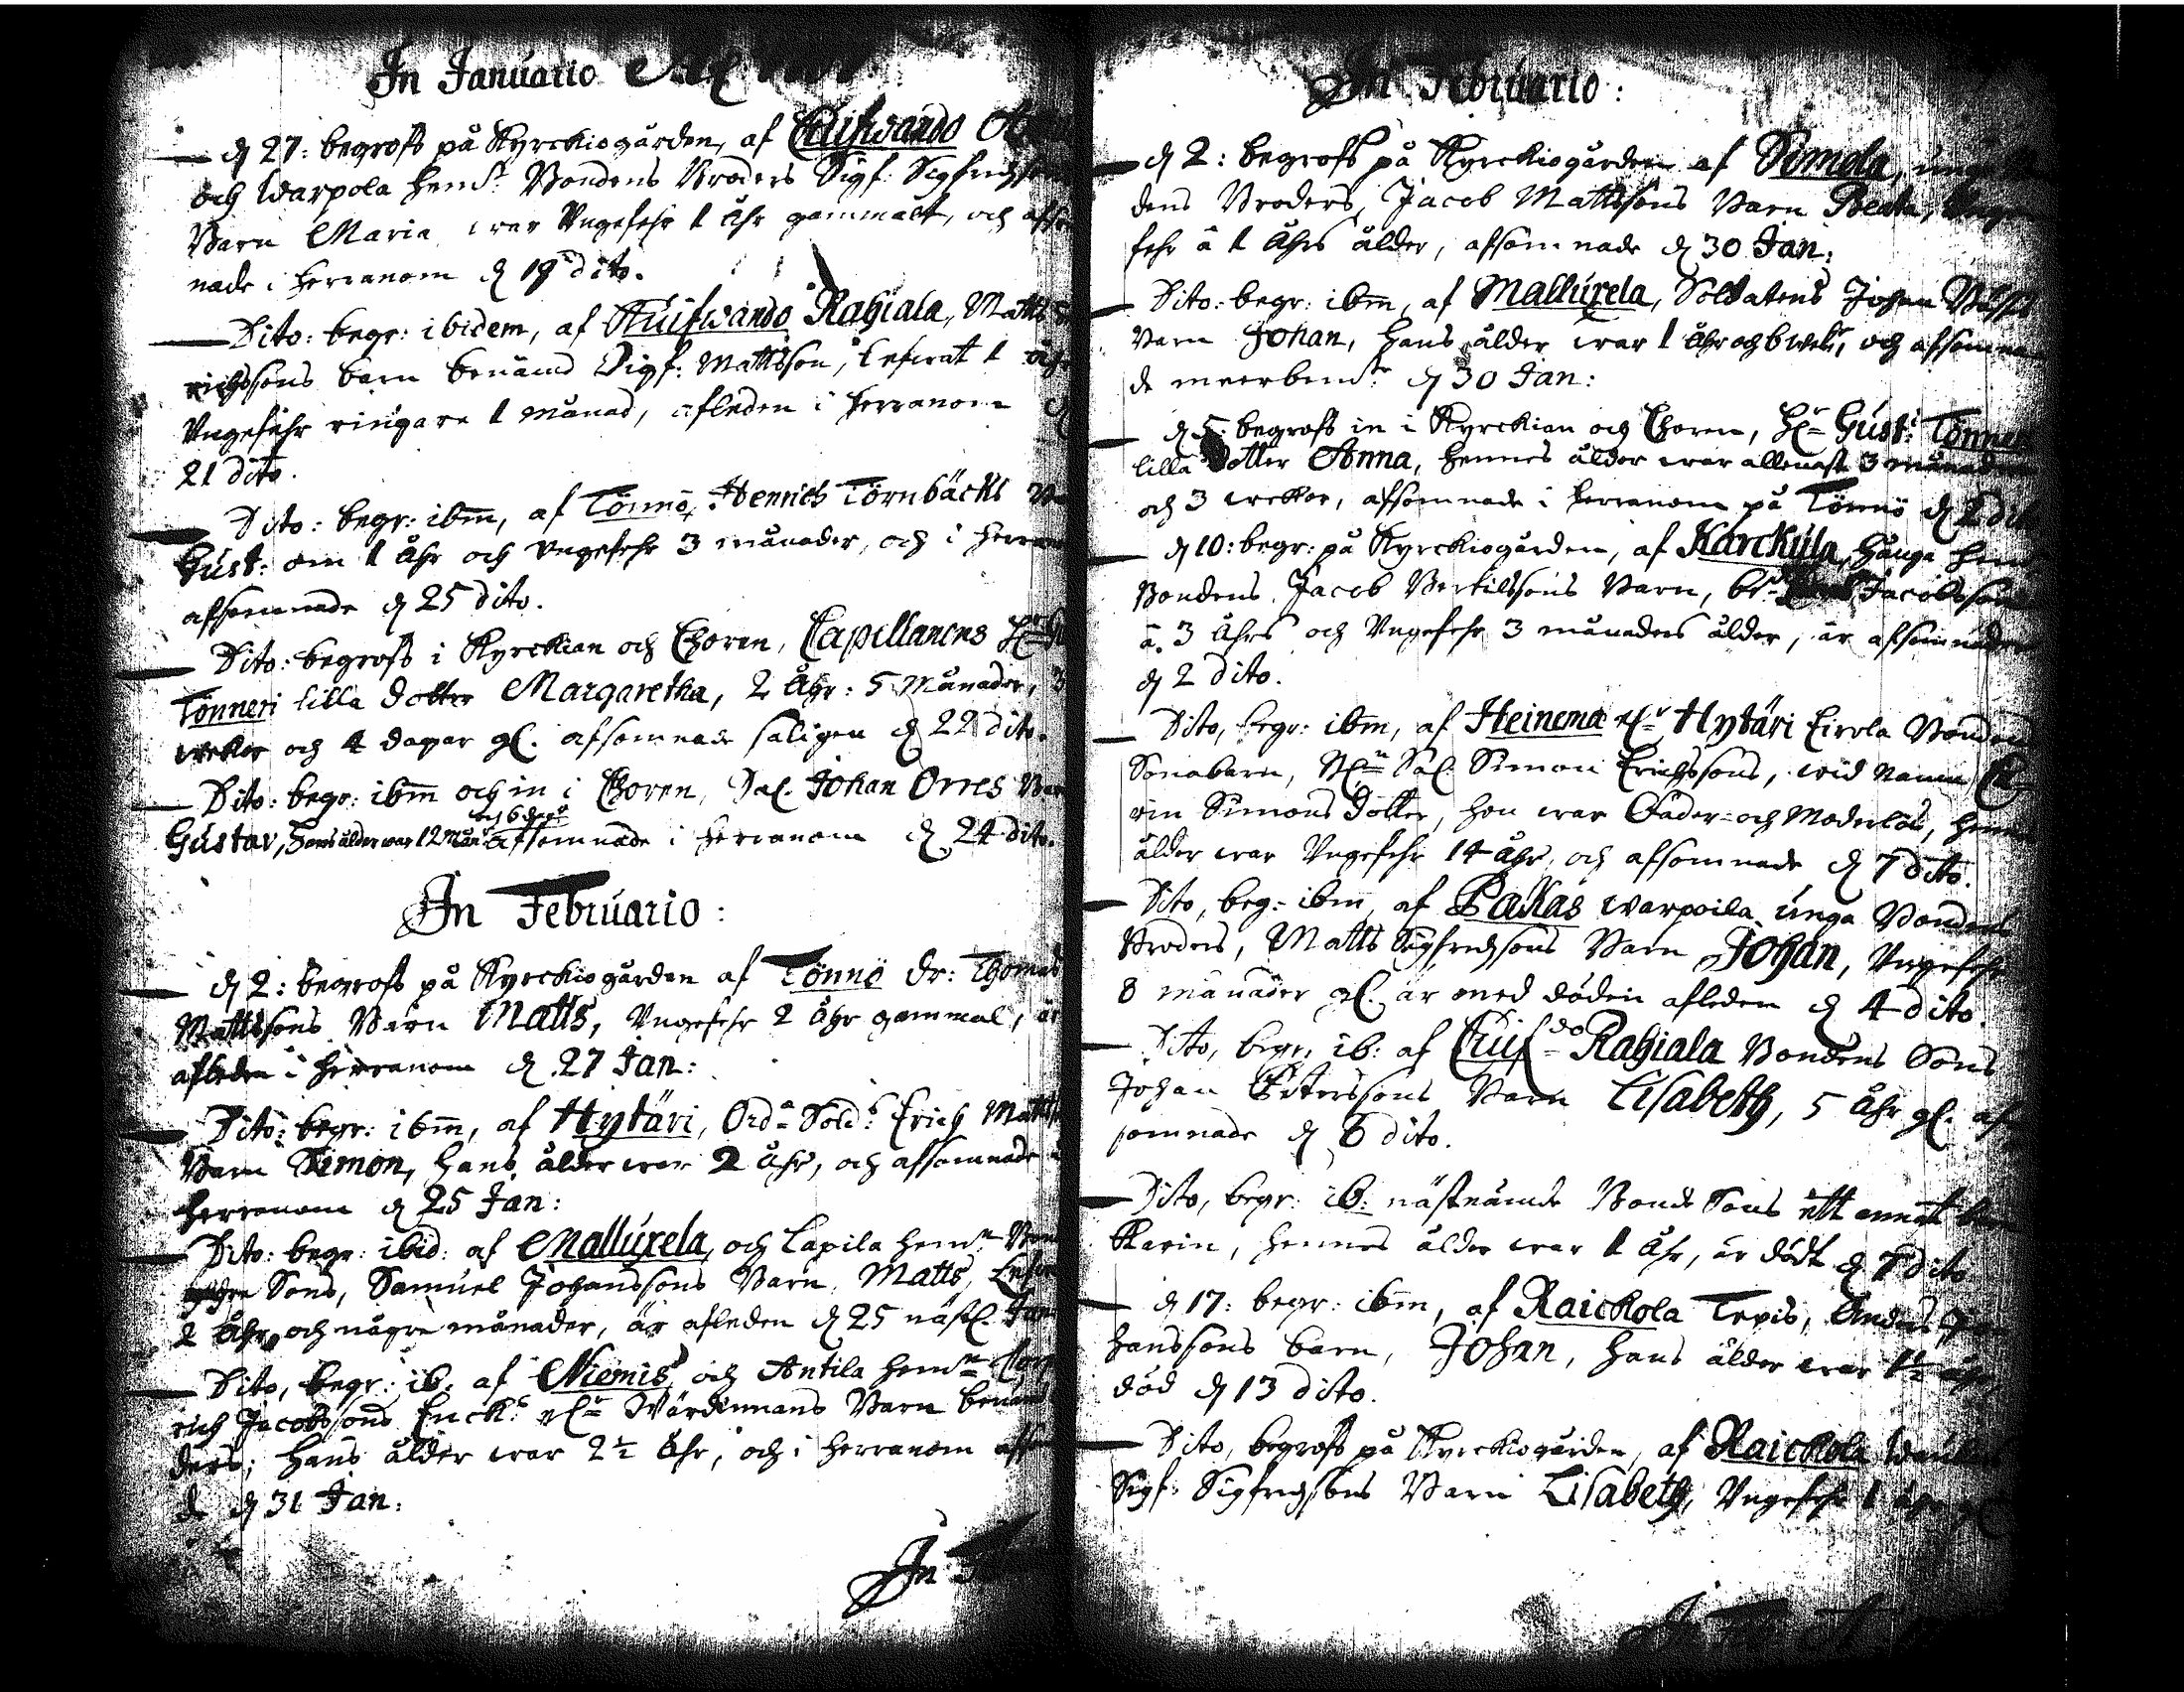 In Januario
d 27: begrofs på Kyrckiogården, af Cuifwando
och Warpola hem: Bondens Broders Sigf: Sigfredsson
Barn Maria war Ungefehr 1 Åhr gammalt, och afsom
nade i herranom d 19 dito.
Dito: begr: ibidem, af Kuifwando Rahiala, Matts
richssons barn benämd Sigf: Mattsson, lefwat 1 åhr
Ungefehr ringare 1 månad, afleden i herranom d
21 dito.
Dito: begr: ibm, af Tönnö, Henrich Törnbäcks
Gust: om 1 Åhr och ungefehr 3 månader, och i herran
afsomnade d 25 dito.
Dito: begrofs i Kyrckian och Choren, Capellanens Hr
Tönneri lilla dotter Margaretha, 2 Åhr: 5 Månader, 3
wekor och 4 dagar gl. afsomnade saligen d 22 dito.
Dito: begr: ibm och in i Choren, Sal. Johan Orres Bar
och 6 dagr
Gustav, hans ålder war 12 Mån afsomnade i herranom d 24 dito.
In Februario:
d 2: begrofs på Kyrckiogården af Tönnö Dr: Thomas
Mattssons Barn Matts, Ungefehr 2 Åhr gammal, är
afleden i herranom d 27 Jan:
Dito: begr: ibm, af Hytäri, Ord Sold: Erich Matts
Barn Simon, hans ålder war 2 åhr, och afsomnade i
herranom d 25 Jan:
Dito: begr: ibid: af Mallurela, och Lapila hem
Sons, Samuel Johanssons Barn, Matts, Lefw
2 Åhr och någre månader, är afleden d 25 nästl. Jan
Dito, begr: ib. af Niemis och Antila hem
rich Jacobssons Enck: Wärdinnans Barn benämd
ders; hans ålder war 2½ Åhr, och i herranom afso
de d 31 Jan:
In
In Februario:
d 2: begrofs på Kyrckiogården af Simola, unga
dens Broders, Jacob Mattssons Barn Beata, Unge
fehr â 1 Åhrs ålder, afsomnade d 30 Jan:
Dito: begr: ibm, af Mallurela, Soldatens Johan
Barn Johan, hans ålder war 1 åhr och 6 wek, och afsomna
de meerbem d 30 Jan:
d 5: begrofs in i Kyrckian och Choren, Hr Gust: Tönneri
lilla Dotter Anna, hennes ålder war allenast 3 månader
och 3 wekor, afsomnade i herranom på Tönnö d 2 dito
d 10: begr: på Kyrckiogården, af Karckula, hånga hem
Bondens Jacob Bertilssons Barn, Jacobsson
â 3 Åhrs och Ungefehr 3 månaders ålder, är afsomnader
d 2 dito.
Dito, begr: ibm, af Heinema Hytäri Eirola Bondens
Sonabarn, Sal. Simon Erichssons, wid namn
rin Simons dotter, hon war Fader- och Moderlös, hennes
ålder war Ungefehr 14 åhr, och afsomnade d 7 dito.
Dito, beg: ibm, af Pakas warpoila unga Bondens
Broders, Matts Sigfredssons Barn Johan, Ungefehr
8 månader gl. är med döden afleden d 4 dito
Dito, begr. ib: af Cuifdo Rahiala Bondens Sons
Johan Peterssons Barn Lisabeth, 5 Åhr gl. af
somnade d 6 dito.
Dito, begr: ib: nästnämde Bonde Sons ett annat barn
Karin, hennes ålder war 1 Åhr, är dödt d 7 dito
d 17: begr: ibm, af Raickola Tepis, Anders Jo
hanssons barn, Johan, hans ålder war 1½ åhr,
död d 13 dito.
Dito, begrofs på Kyrckiogården, af Raickola
Sigf: Sigfredssons Barn Lisabeth, Ungefehr 1 åhr gl